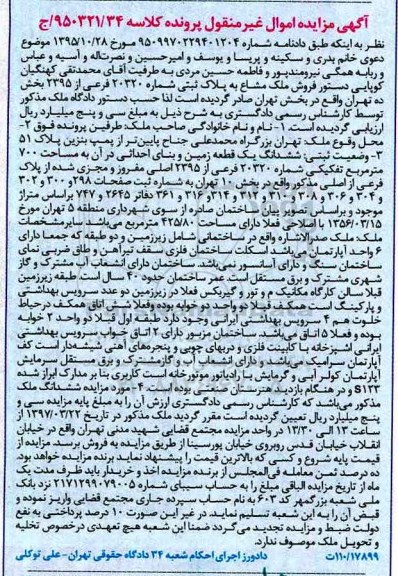 آگهی مزایده اموال غیرمنقول پرونده کلاسه ۹۵۰۳۲۱/۳۴/ج
نظر به اینکه طبق دادنامه شماره ۹۵۰۹۹۷۰۲۲۹۴۰۱۲۰۴ مورخ ۱۳۹۵/۱۰/۲۸ موضوع
دعوی خانم پدری و سکینه و پریسا و یوسف و امیرحسین و نصرت‌اله و آسیه و عباس
و ربابه همگی نیرومندپور و فاطمه حسین مردی به طرفیت آقای محمدتقی کهنگیان
کوپایی دستور فروش ملک مشاع به پلاک ثبتی شماره ۲۰۳۲۰ فرعی از ۲۳۹۵ بخش
ده تهران واقع در بخش تهران صادر گردیده است لذا حسب دستور دادگاه ملک مذکور
توسط کارشناس رسمی دادگستری به شرح ذیل به مبلغ سی و پنج میلیارد ریال
ارزیابی گردیده است. ۱- نام و نام خانوادگی صاحب ملک: طرفین پرونده فوق ۲-
محل وقوع ملک: تهران بزرگراه محمدعلی جناح پایین‌تر از پمپ بنزین پلاک ۵۱
۳- وضعیت ثبتی: ششدانگ یک قطعه زمین و بنای احداثی در آن به مساحت ۷۰۰
مترمربع تفکیکی شماره ۲۰۳۲۰ فرعی از ۲۳۹۵ اصلی مفروز و مجزی شده از پلاک
فرعی از اصلی مذکور واقع در بخش ۱۰ تهران به شماره ثبت صفحات ۲۹۸ ۳۰۰ و ۳۰۲
و ۳۰۴ و ۳۰۶ و ۳۰۸ و ۳۱۰ و ۳۱۲ و ۳۱۴ و ۳۱۶ و ۳۶۱ دفاتر ۲۶۴۵ و ۷۴۷ براساس متراژ
موجود و براساس تصویر پایان ساختمان صادره از سوی شهرداری منطقه ۵ تهران مورخ
۱۳۵۶/۰۳/۱۵ با اصلاحی فعلا دارای مساحت ۴۲۵۸۰ مترمربع می‌باشد سایر مشخصات
ملک: ملک صدرالاشاره واقع در ساختمانی شامل زیرزمین و دو طبقه که جمعا دارای
۶ واحد آپارتمان می‌باشد اسکلت ساختمان فلزی سقف تیرآهن و طاق ضربی نمای
ساختمان سنگ و دارای آسانسور نمی‌باشد ساختمان دارای انشعاب آب مشترک و گاز
شهری مشترک و برق مستقل است عمر ساختمان حدود ۴۰ سال است. طبقه زیرزمین
قبلا سالن کارگاه مکانیک و تور و گیربکس فعلا در زیرزمین دو عدد سرویس بهداشتی
و پارکینگ است همکف قبلا دو واحد دو خوابه بوده و فعلا شش اتاق همکف در حیاط
خلوت همه ۴ سرویس بهداشتی ایرانی وجود دارد طبقه اول قبلا دو واحد ۲ خوابه
بوده و فعلا ۵ اتاق می‌باشد. ساختمان مزبور دارای ۲ اتاق خواب سرویس بهداشتی
ایرانی آشپزخانه با کابینت فلزی و دربهای چوبی و پنجره‌های آهنی شیشه‌دار است کف
آپارتمان سرامیک می‌باشد و دارای انشعاب آب و گاز مشترک و برق مستقل سرمایش
آپارتمان کولر آبی و گرمایش با رادیاتور موتورخانه است کاربری بنا بر مدارک ابراز شده
S۱۲۳ و در هنگام بازدید هنرستان صنعتی بوده است. مورد مزایده ششدانگ ملک
مذکور می‌باشد که کارشناس رسمی دادگستری ارزش آن را به مبلغ پایه مزایده سی و
پنج میلیارد ریال تعیین گردیده است مقرر گردید ملک مذکور در تاریخ ۱۳۹۷/۰۳/۲۲ از
ساعت ۱۳ الی ۱۳/۳۰ در واحد مزایده مجتمع قضایی شهید مدنی تهران واقع در خیابان
انقلاب خیابان قدس روبروی خیابان پورسینا از طریق مزایده به فروش برسد. مزایده از
قیمت پایه شروع و کسی که بالاترین قیمت را پیشنهاد نماید برنده مزایده خواهد بود.
ده درصد ثمن معامله فی‌المجلس از برنده مزایده اخذ و خریدار باید ظرف مدت یک
ماه از تاریخ مزایده الباقی مبلغ را به حساب سیبای شماره ۲۱۷۱۲۹۹۰۷۹۰۰۵ نزد بانک
ملی شعبه بزرگمهر کد ۶۰۳ به نام حساب سپرده جاری مجتمع قضایی واریز نموده و
قبض آن را به این شعبه تسلیم نماید. در غیر این صورت ۱۰ درصد پرداختی به نفع
دولت ضبط و مزایده تجدید می‌گردد ضمنا این شعبه هیچ تعهدی درخصوص تخلیه
و تحویل ملک موصوف ندارد.
۱۱۰/۱۷۸۹۹ت
دادورز اجرای احکام شعبه ۳۴ دادگاه حقوقی تهران- علی توکلی